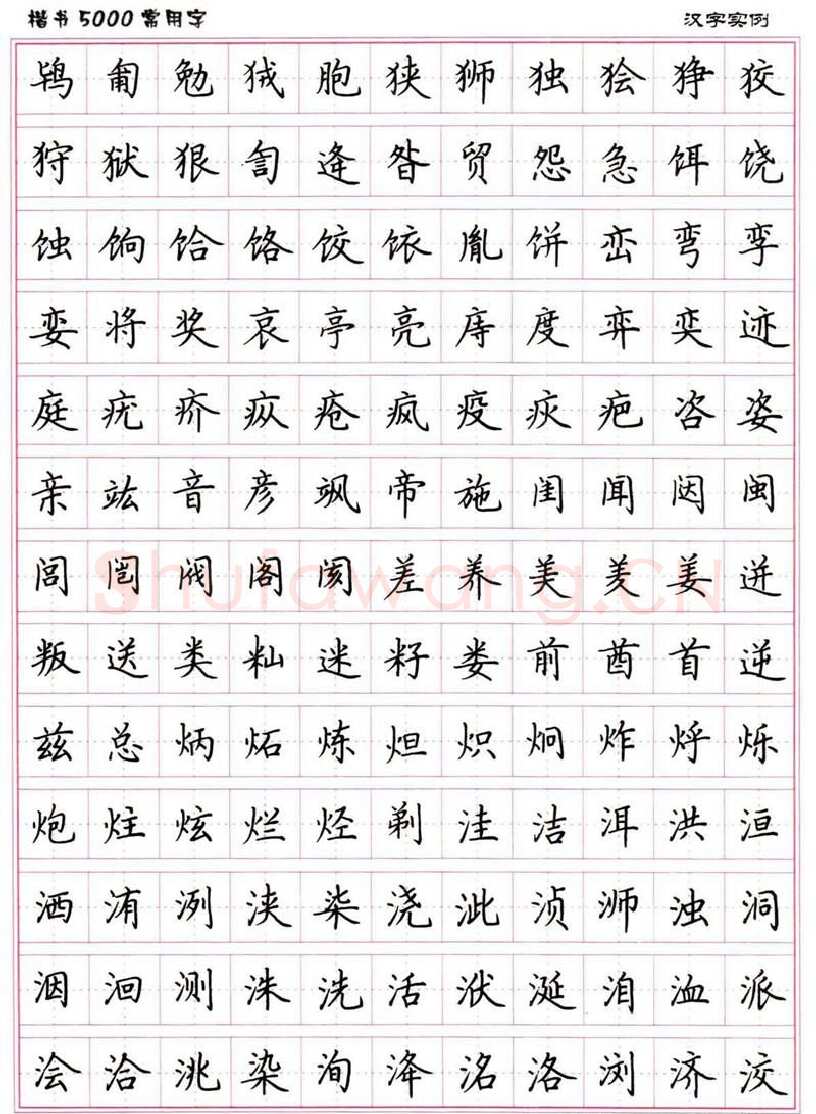 楷书5000常用字 汉字实例
鸨匍勉狨胞狭狮独狯狰狡
狩狱狠訇逄昝贸怨急饵饶
蚀饷饸饹饺饻胤饼峦弯孪
娈将奖哀亭亮庤度弈奕迹
庭疣疥疭疮疯疫疢疤咨姿
亲竑音彦飒帝施闺闻闼闽
闾闿阀阁阂差养美羑姜迸
叛送类籼迷籽娄前酋首逆
兹总炳炻炼炟炽炯炸烀烁
炮炷炫烂烃剃洼洁洱洪洹
洒洧洌浃柒浇泚浈浉浊洞
洇洄测洙洗活洑涎洎洫派
浍洽洮染洵洚洺洛浏济洨
Shufawang.CN